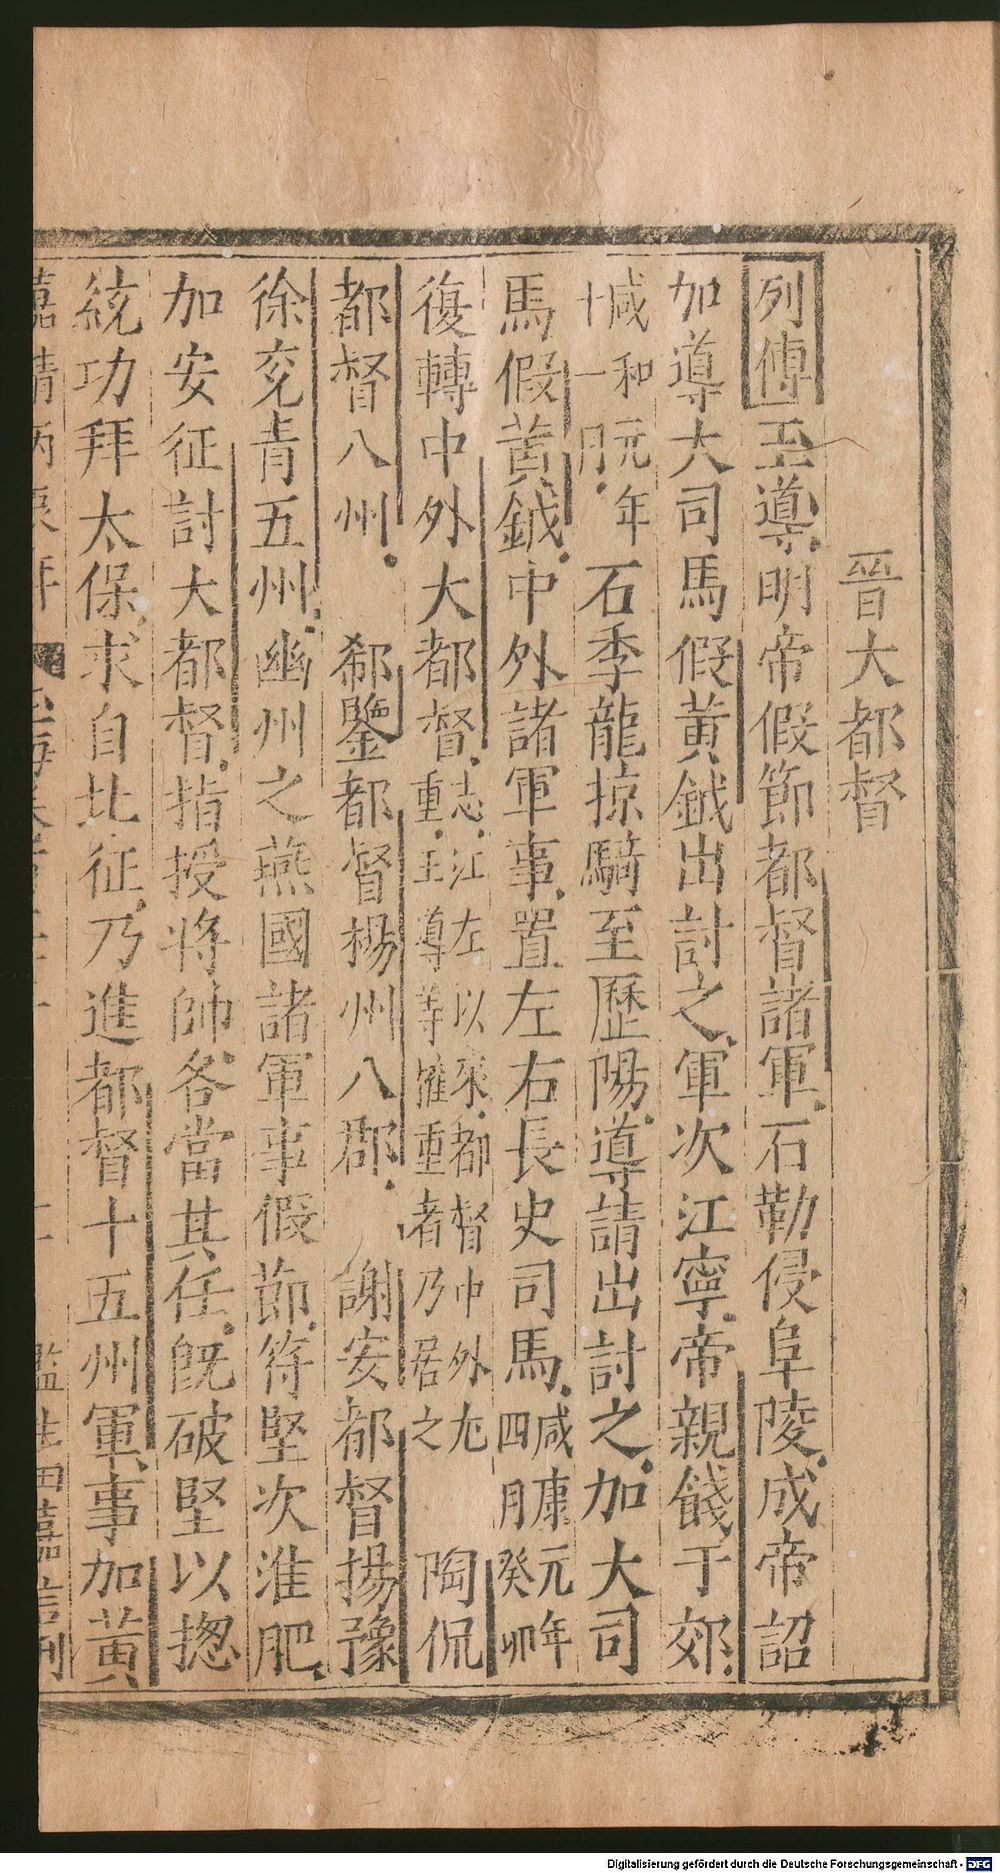 晉大都督
列傳王導明帝假節都督諸軍石勒侵阜陵成帝詔
加導大司馬假黄鉞出討之軍次江寧帝親餞于郊
咸和元年
十一月
石季龍掠騎至歷陽導請出討之加大司
馬假黄鉞中外諸軍事置左右長史司馬
咸康元年
四月癸卯
復轉中外大都督
志江左以來都督中外尤
重王導等權重者乃居之
陶侃
都督八州 郗鑒都督楊州八郡 謝安都督揚豫
徐兖青五州幽州之燕國諸軍事假節符堅次淮肥
加安征討大都督指授將帥各當其任既破堅以揔
統功拜太保求自北征乃進都督十五州軍事加黄
嘉靖丙 年
監生田嘉 刊
Digitalisierung gefördert durch die Deutsche Forschungsgemeinschaft - DFG